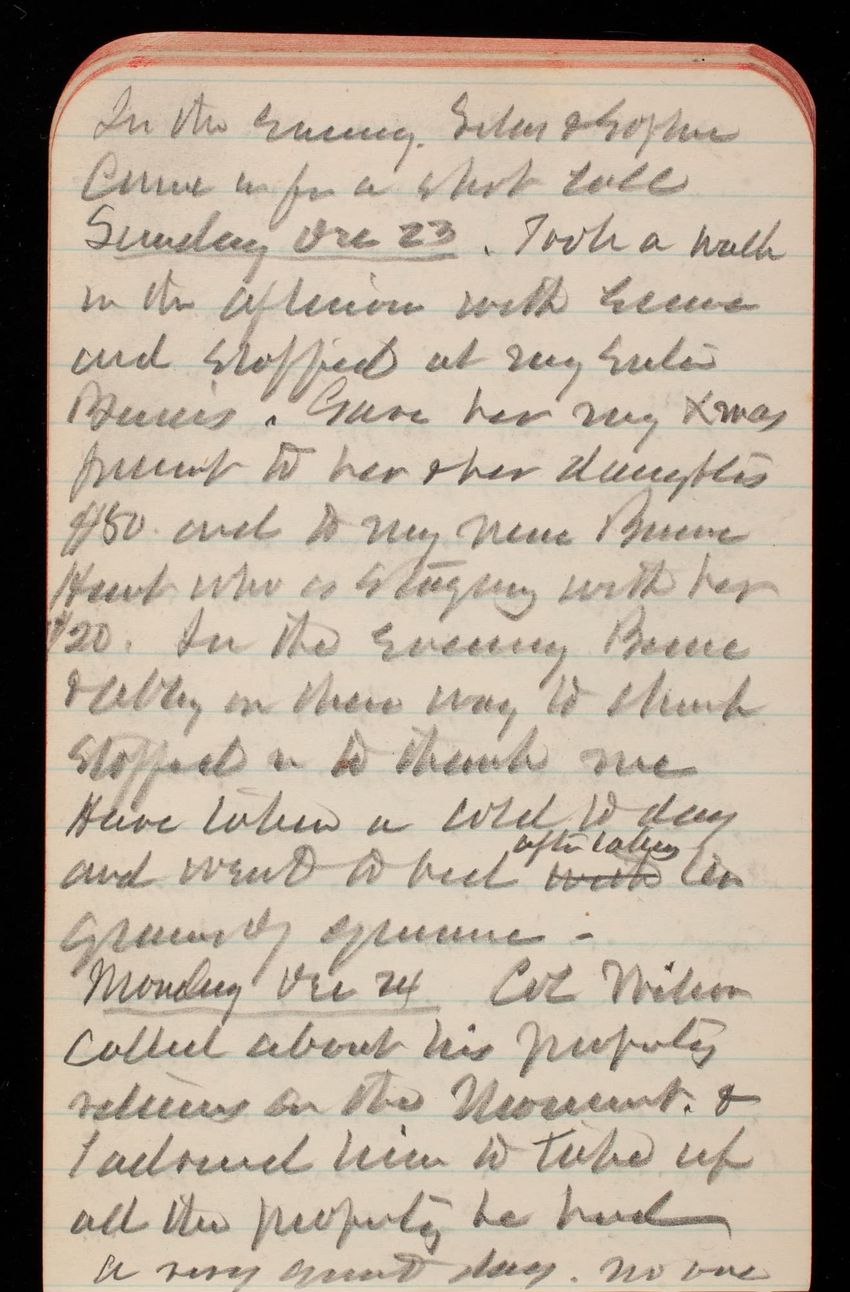 In the Evening. Silas & Sophie
Came in for a short call
Sunday Dec 23. Took a walk
in the afternoon with
and stopped at my Sister
Bessie's. Gave her my Xmas
present to her & her daughters
$50 and to my niece
Hunt who is staying with her
$20. In the Evening
& Abby on their way to church
stopped in to thank me
Have taken a cold to day
and went to bed after taking with ten
grains of quinine -
Monday Dec 24 Col Wilson
called about his property
returns on the Monument. &
I advised him to take up
all the property he had
a very quiet day. no one